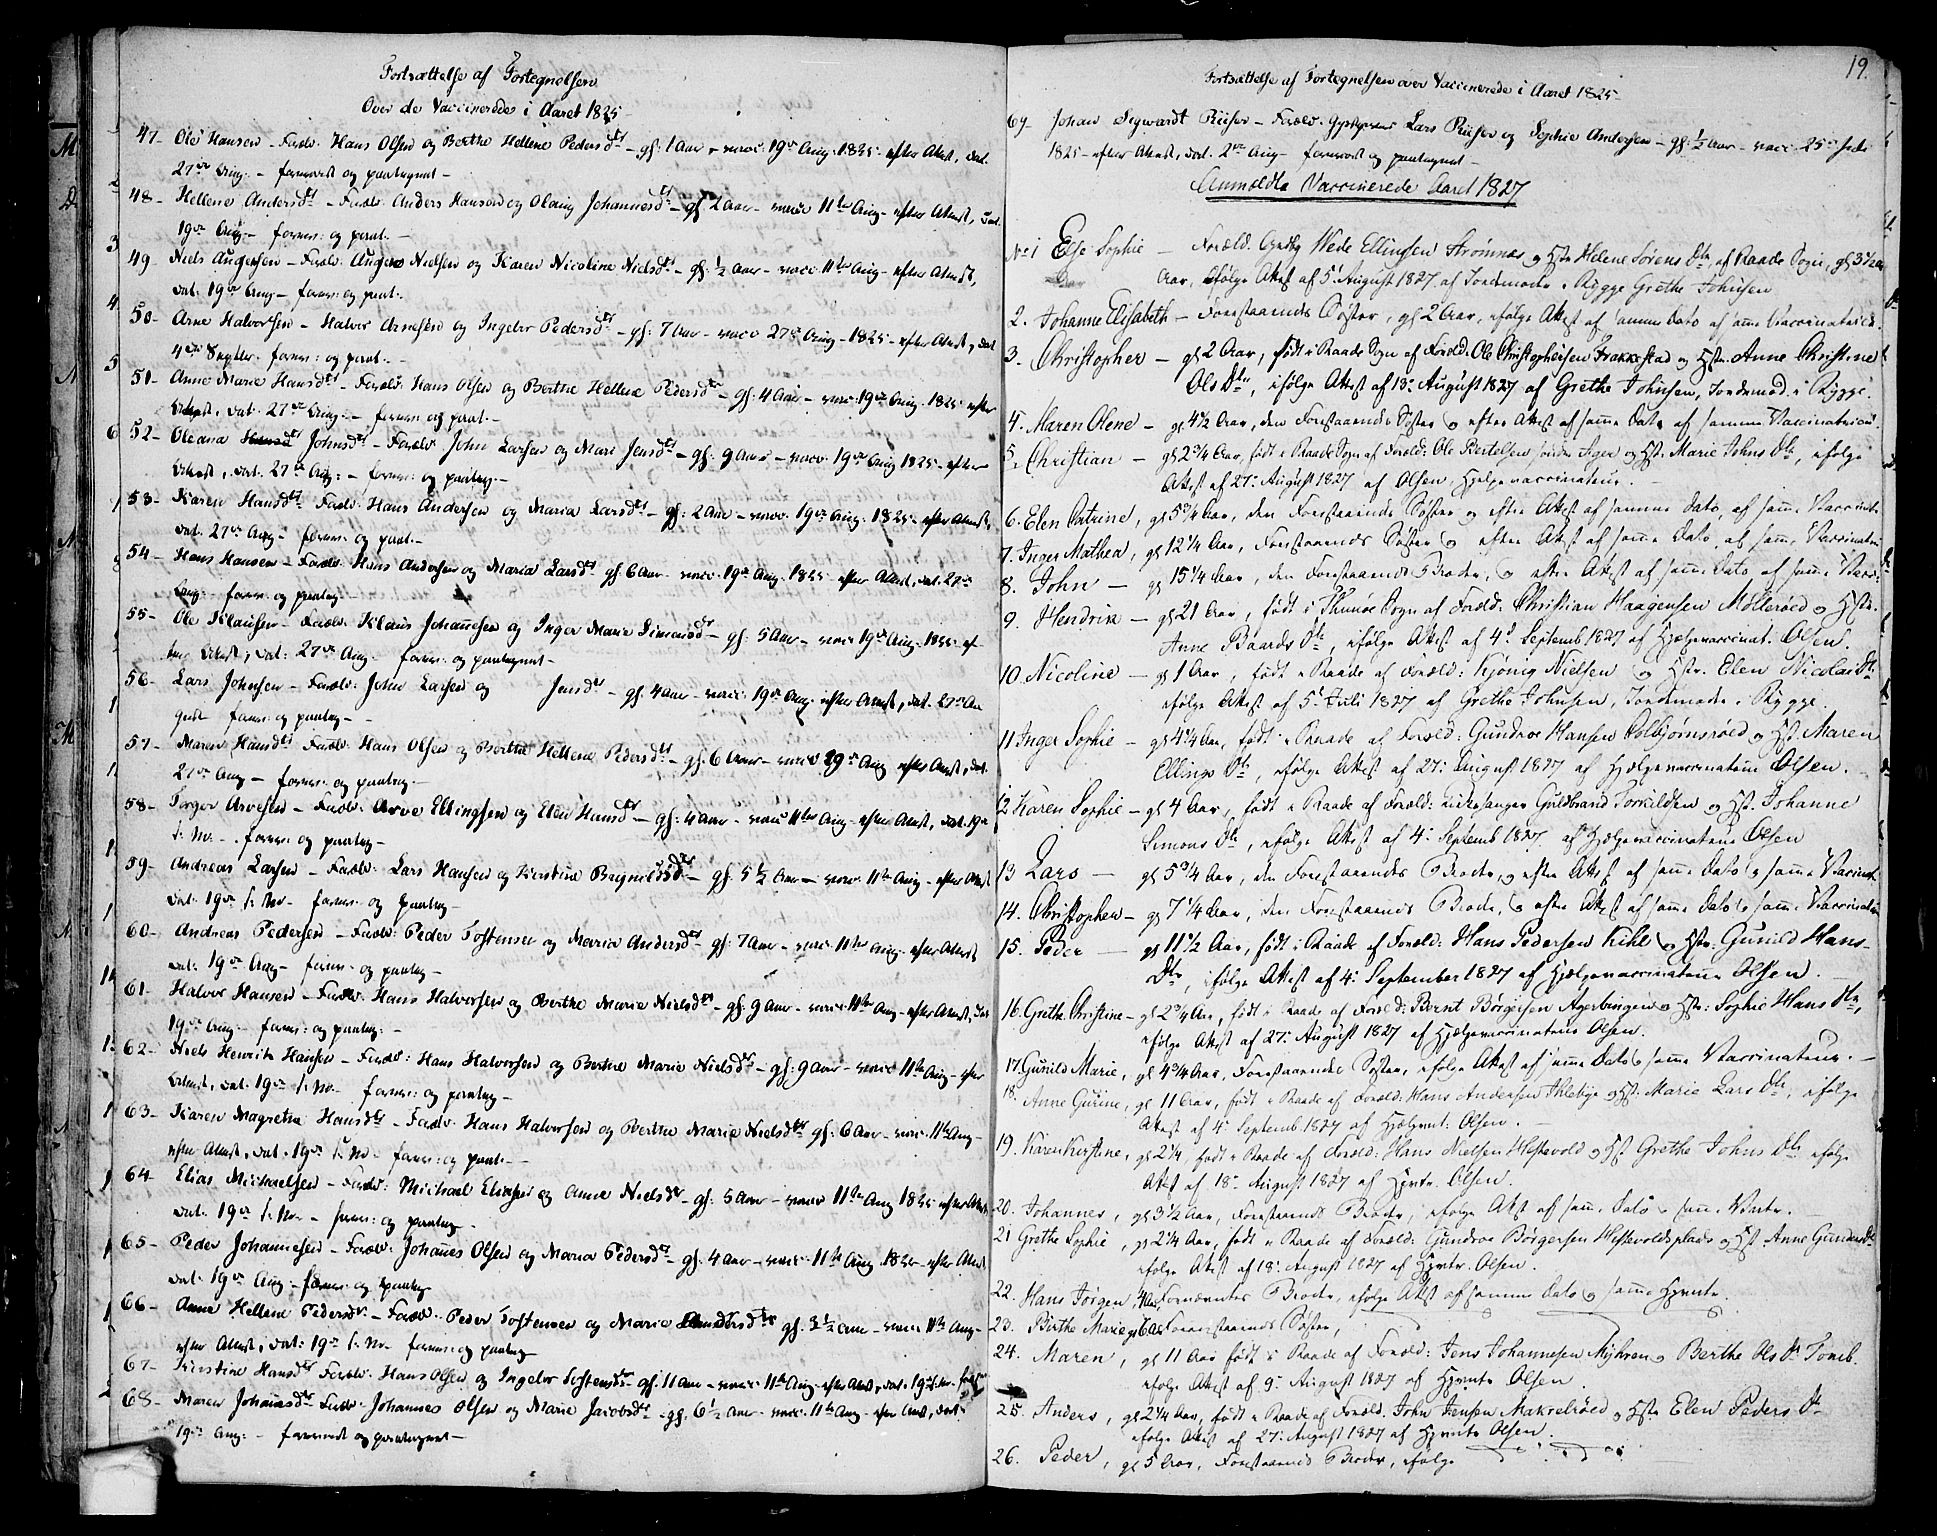 Fortsættelse af Fortegnelsen
Over de Vaccinerede i Aaret 1825
47- Ole Hansen - Foræld. Hans Olsen og Berthe Hellene Pedersdtr - gl: 1 Aar - vacc: 19de Aug. 1825 - efter Attest, dat.
27de Aug. - foreviist og paategnet -
48- Hellene Andersdtr - Foræld. Anders Hansen og Olaug Johannesdtr - gl 2 Aar - vacc 11te Aug. - efter Attest, dat.
19de Aug - forev: og paat. -
49- Niels Augensen - Foræld. Augen Nielsen og Karen Nicoline Nielsdtr - gl: ½ Aar - vacc: 11te Aug - efter Attest,
dat. 19de Aug - forev: og paat.
50- Arne Halvorsen - Halvor Arnesen og Ingebor Pedersdtr - gl: 7 Aar - vacc 27de Aug - 1825 - efter Attest, dat
4de Septbr. forev: og paat. -
51- Anne Marie Hansdtr - Foræld. Hans Olsen og Berthe Hellene Pedersdtr - gl: 4 Aar - vacc: 19de Aug. 1825 efter
Attest, dat. 27de Aug: - forev: og paat. -
52- Oleana Johnsdtr - Foræld. John Larsen og Mari Jensdtr - gl: 9 Aar - vacc. 19de Aug 1825 - efter
Attest, dat. 27de Aug: - forev: og paateg. -
53- Karen Hansdtr Foræld. Hans Andersen og Maria Larsdtr - gl: 2 Aar - vacc. 19de Aug. 1825 - efter Attest,
dat. 27de Aug - forev: og paat. -
54- Hans Hansen - Foræld. Hans Andersen og Maria Larsdtr gl: 6 Aar - vacc. 19de Aug. 1825 - efter Attest, dat. 27de
Aug: - forev. og paateg -
55- Ole Klausen - Foræld. Klaus Johannesen og Inger Marie Simensdtr - gl: 5 Aar - vacc: 19de Aug. 1825 - ef-
ter Attest, dat: 27de Aug. forev: og paategnet -
56- Lars Johnsen - Foræld. John Larsen og Jensdtr - gl: 4 Aar - vacc: 19de Aug. efter Attest, dat. 27de Au
gust forev: og paateg -
57- Maren Hansdtr Foræld. Hans Olsen og Berthe Hellene Pedersdtr - gl: 6 Aar - vacc 19de Aug efter Attest, dat.
27de Aug - forev: og paateg. -
58- Torger Arvesen - Foræld. Arve Ellingsen og Elen Hansdtr - gl: 4 Aar - vacc 11te Aug - efter Attest, dat. 19de
s: M. - forev: og paateg -
59- Andreas Larsen - Foræld. Lars Hansen og Kirstine - gl: 5 ½ Aar - vacc. 11te Aug - efter Attest
dat. 19de s: M - forev: og paateg -
60- Andreas Pedersen - Foræld: Peder Tostensen og Maria Andersdtr - gl: 7 Aar - vacc: 11te Aug. efter Attest
dat. 19de Aug - forev: og paateg -
61- Halvor Hansen - Foræld. Hans Halvorsen og Berthe Marie Nielsdtr - gl: 9 Aar - vacc: 11te Aug - efter Attest, dat
19de Aug - forev: og paateg: -
62- Niels Henrik Hansen - Foræld: Hans Halvorsen og Berthe Marie Nielsdtr - gl: 9 Aar - vacc 11te Aug - efter
Attest, dat. 19de s: M. - forev: og paateg -
63- Karen Magrethe Hansdtr - Foræld. Hans Halvorsen og Berthe Marie Nielsdtr gl: 6 Aar - vacc. 11te Aug -
efter Attest, dat. 19de s: M. forev: og paat. -
64- Elias Michaelsen - Foræld: Michael Eliasen og Anne Nielsdtr - gl: 5 Aar - vacc 11te Aug 1825 efter Attest
dat. 19de s: M. - forev: og paateg -
65- Peder Johannesen - Foræld: Johannes Olsen og Maria Pedersdtr - gl: 4 Aar - vacc: 11te Aug. 1825 - efter Attest
dat. 19de Aug - forev: og paateg
66- Anne Hellene Pedersdtr. Foræld. Peder Tostensen og Maria Andersdtr gl: 3 ½ Aar - vacc: 11te Aug -
efter Attest, dat: 19de s: M. forev: og paateg
67- Kirstine Hansdtr Foræld. Hans Olsen og Ingebor Tostensdtr - gl: 11 Aar - vacc: 11te Aug. efter Attest, dat. 19de s: M.
68- Maren Johannesdtr Foræld. Johannes Olsen og Marie Jacobsdtr - gl: 6 ½ Aar - vacc: 11te Aug - efter Attest, dat.
19de Aug: - foreviist og paategnet -
19.
Fortsættelse af Fortegnelsen over Vaccinerede i Aaret 1825
69- Johan Segwardt Riiser - Foræld. Lars Riiser og Sophie Andersen - gl: ½ Aar - vacc: 25de Juli
1825 - efter Attest, dat. 2den Aug - foreviist og paategnet -
Anmeldte Vaccinerede Aaret 1827
No 1 Else Sophie - Foræld. Wede Ellingsen Strømnæs og Hstr Helene Sørens Dtr, af Raade Sogn, gl 3½
Aar, ifølge Attest af 5t August 1827 af Jordemoder i Rygge Grethe Johnsen
2. Johanne Elisabeth - Forestaaendes Søster, gl 2 Aar, ifølge Attest af samme Dato af samme Vaccinatrice.
3. Christopher - gl 2 Aar, født i Raade Sogn af Foræld: Ole Christophersen Frakkestad og Hstr. Anne Christine
Ols Dtr, ifølge Attest af 13: August 1827 af Grethe Johnsen, Jordemod. i Rygge.
4. Maren Olene - gl 4½ Aar, den Forestaaendes Søster og efter Attest af samme Dato af samme Vaccinatrice.
5. Christian - gl 2¾ Aar, født i Raade Sogn af Foræld: Ole Bertelsen og Hst: Marie Johns Dtr, ifølge
Attest af 27: August 1827 af Olsen, Hjelpevaccinateur. -
6. Elen Catrine, gl 5¾ Aar, den Forestaaendes Søster og efter Attest af samme Dato, af samme Vaccinate
7. Inger Mathea, gl 12¼ Aar, Forestaaendes Søster og efter Attest af samme Dato, af samme Vaccinateu
8. John - gl 15¼ Aar, den Forestaaendes Broder, og efter Attest af samme Dato af samme Vacci
9. Hendrik - gl 21 Aar, født i Thunøe Sogn af Foræld: Christian Haagensen Mollerøed og Hstr.
Anne Baards Dtr, ifølge Attest af 4de Septemb 1827 af Hjelpevaccinat. Olsen.
10. Nicoline - gl 1 Aar, født i Raade af Foræld: Kjønig Nielsen og Hstr. Elen Nicolai Dtr
ifølge Attest af 5t Juli 1827 af Grethe Johnsen, Jordemoder i Rygge.
11 Inger Sophie - gl 4¼ Aar, født i Raade af Foræld: Gundroe Hansen Asbjørnsrøed og Hst. Maren
Ellings Dtr, ifølge Attest af 27: August 1827 af Hjelpevaccinateur Olsen. -
12 Karen Sophie - gl 4 Aar, født i Raade af Foræld: Kirkesanger Guldbrand Torkildsen og Hst. Johanne
Simons Dtr, ifølge Attest af 4: Septemb 1827 af Hjelpevaccinateur Olsen
13 Lars - gl 5¾ Aar, den Forestaaendes Broder, og efter Attest af samme Dato og samme Vaccinat.
14. Christopher - gl 7¼ Aar, den Forestaaendes Broder, og efter Attest af samme Dato og samme Vaccinateu
15. Peder - gl 11½ Aar, født i Raade af Foræld: Hans Pedersen Kihl og Hstr: Gunild Hans-
Dtr, ifølge Attest af 4: September 1827 af Hjelpevaccinateur Olsen.
16. Grethe Christine - gl 2¾ Aar, født i Raade af Foræld: Bernt Børgesen og Hstr: Sophie Hans Dtr,
ifølge Attest af 27: August 1827 af Hjelpevaccinateur Olsen.
17. Gunild Marie, gl 4¾ Aar, Forestaaendes Søster, ifølge Attest af samme Dato og samme Vaccinateur. -
18. Anne Gurine, gl 11 Aar, født i Raade af Foræld: Hans Andersen og Hst: Marie Lars Dtr, ifølge
Attest af 4: Septemb 1827 af Hjelpevact: Olsen. -
19. Karen Kirstine, gl 2¼, født i Raade af Foræld: Hans Nielsen Hestevold og Hst Grethe Johns Dtr ifølge
Attest af 18: August 1827 af Hjvctr. Olsen.
20. Johannes, gl 3½ Aar, Forestaaendes Broder, ifølge Attest af samme Dato og samme Vactr.
21 Grethe Sophie, gl 2¼ Aar, født i Raade af Foræld: Gundroe Børgersen Hestevoldsplads og Hst Anne Gunders Dtr
ifølge Attest af 18: August 1827 af Hjvctr Olsen.
22. Hans Jørgen 4 Aar, Fornævntes Broder, ifølge Attest af samme Dato og samme Hjvctr.
23. Birthe Marie gl 6 Aar Forestaaendes Søster,
24. Maren, gl 11 Aar født i Raade af Foræld: Jens Johannesen Myhren og Berthe Ols Dtr
ifølge Attest af 9: August 1827 af Hjvctr Olsen.
25. Anders, gl 2¼ Aar, født i Raade af Foræld. John Jensen Makrelrøed og Hstr Elen Peders Dtr
ifølge Attest af 27: August 1827 af Hjvctr Olsen.
26. Peder, gl 5 Aar, Forestaaendes Broder, ifølge